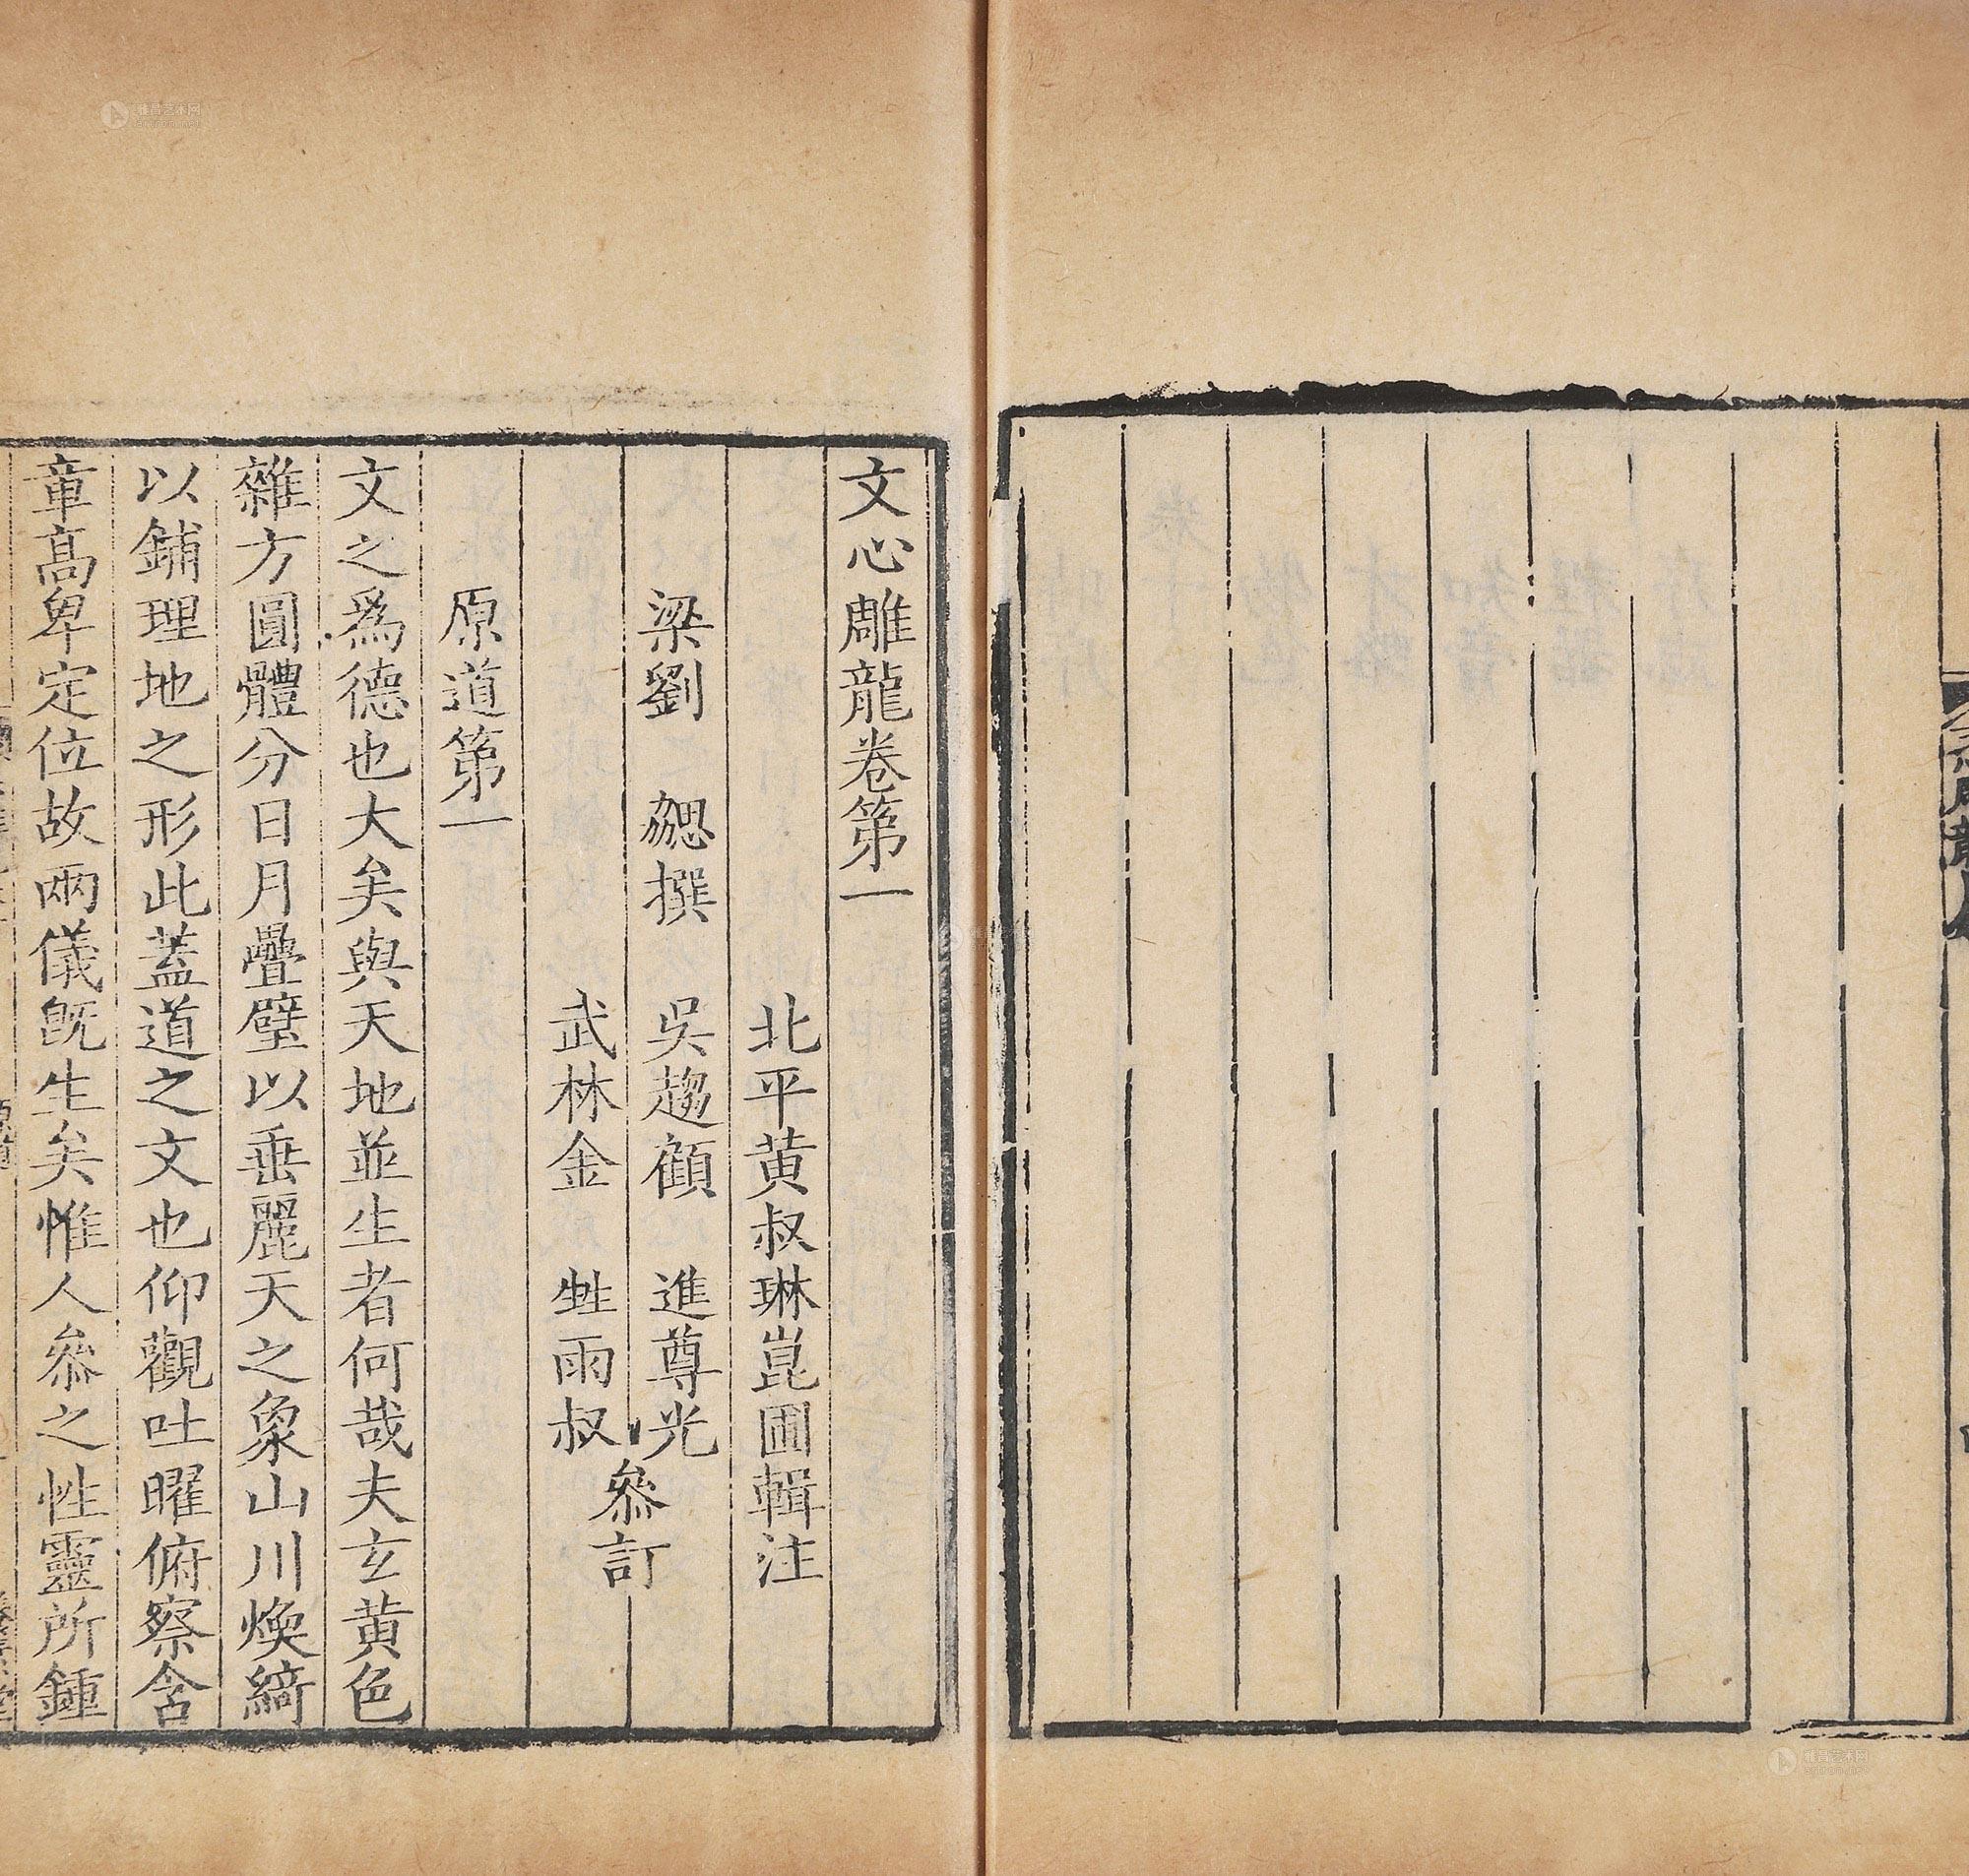 文心雕龍卷第一
北平黄叔琳崑圃輯注
梁劉勰撰　吳趨顧進尊光
武林金甡雨叔
參訂
原道第一
文之爲德也大矣與天地並生者何哉夫玄黄色
雜方圓體分日月疊璧以垂麗天之象山川煥綺
以鋪理地之形此蓋道之文也仰觀吐曜俯察含
章高卑定位故兩儀既生矣惟人參之性靈所鍾